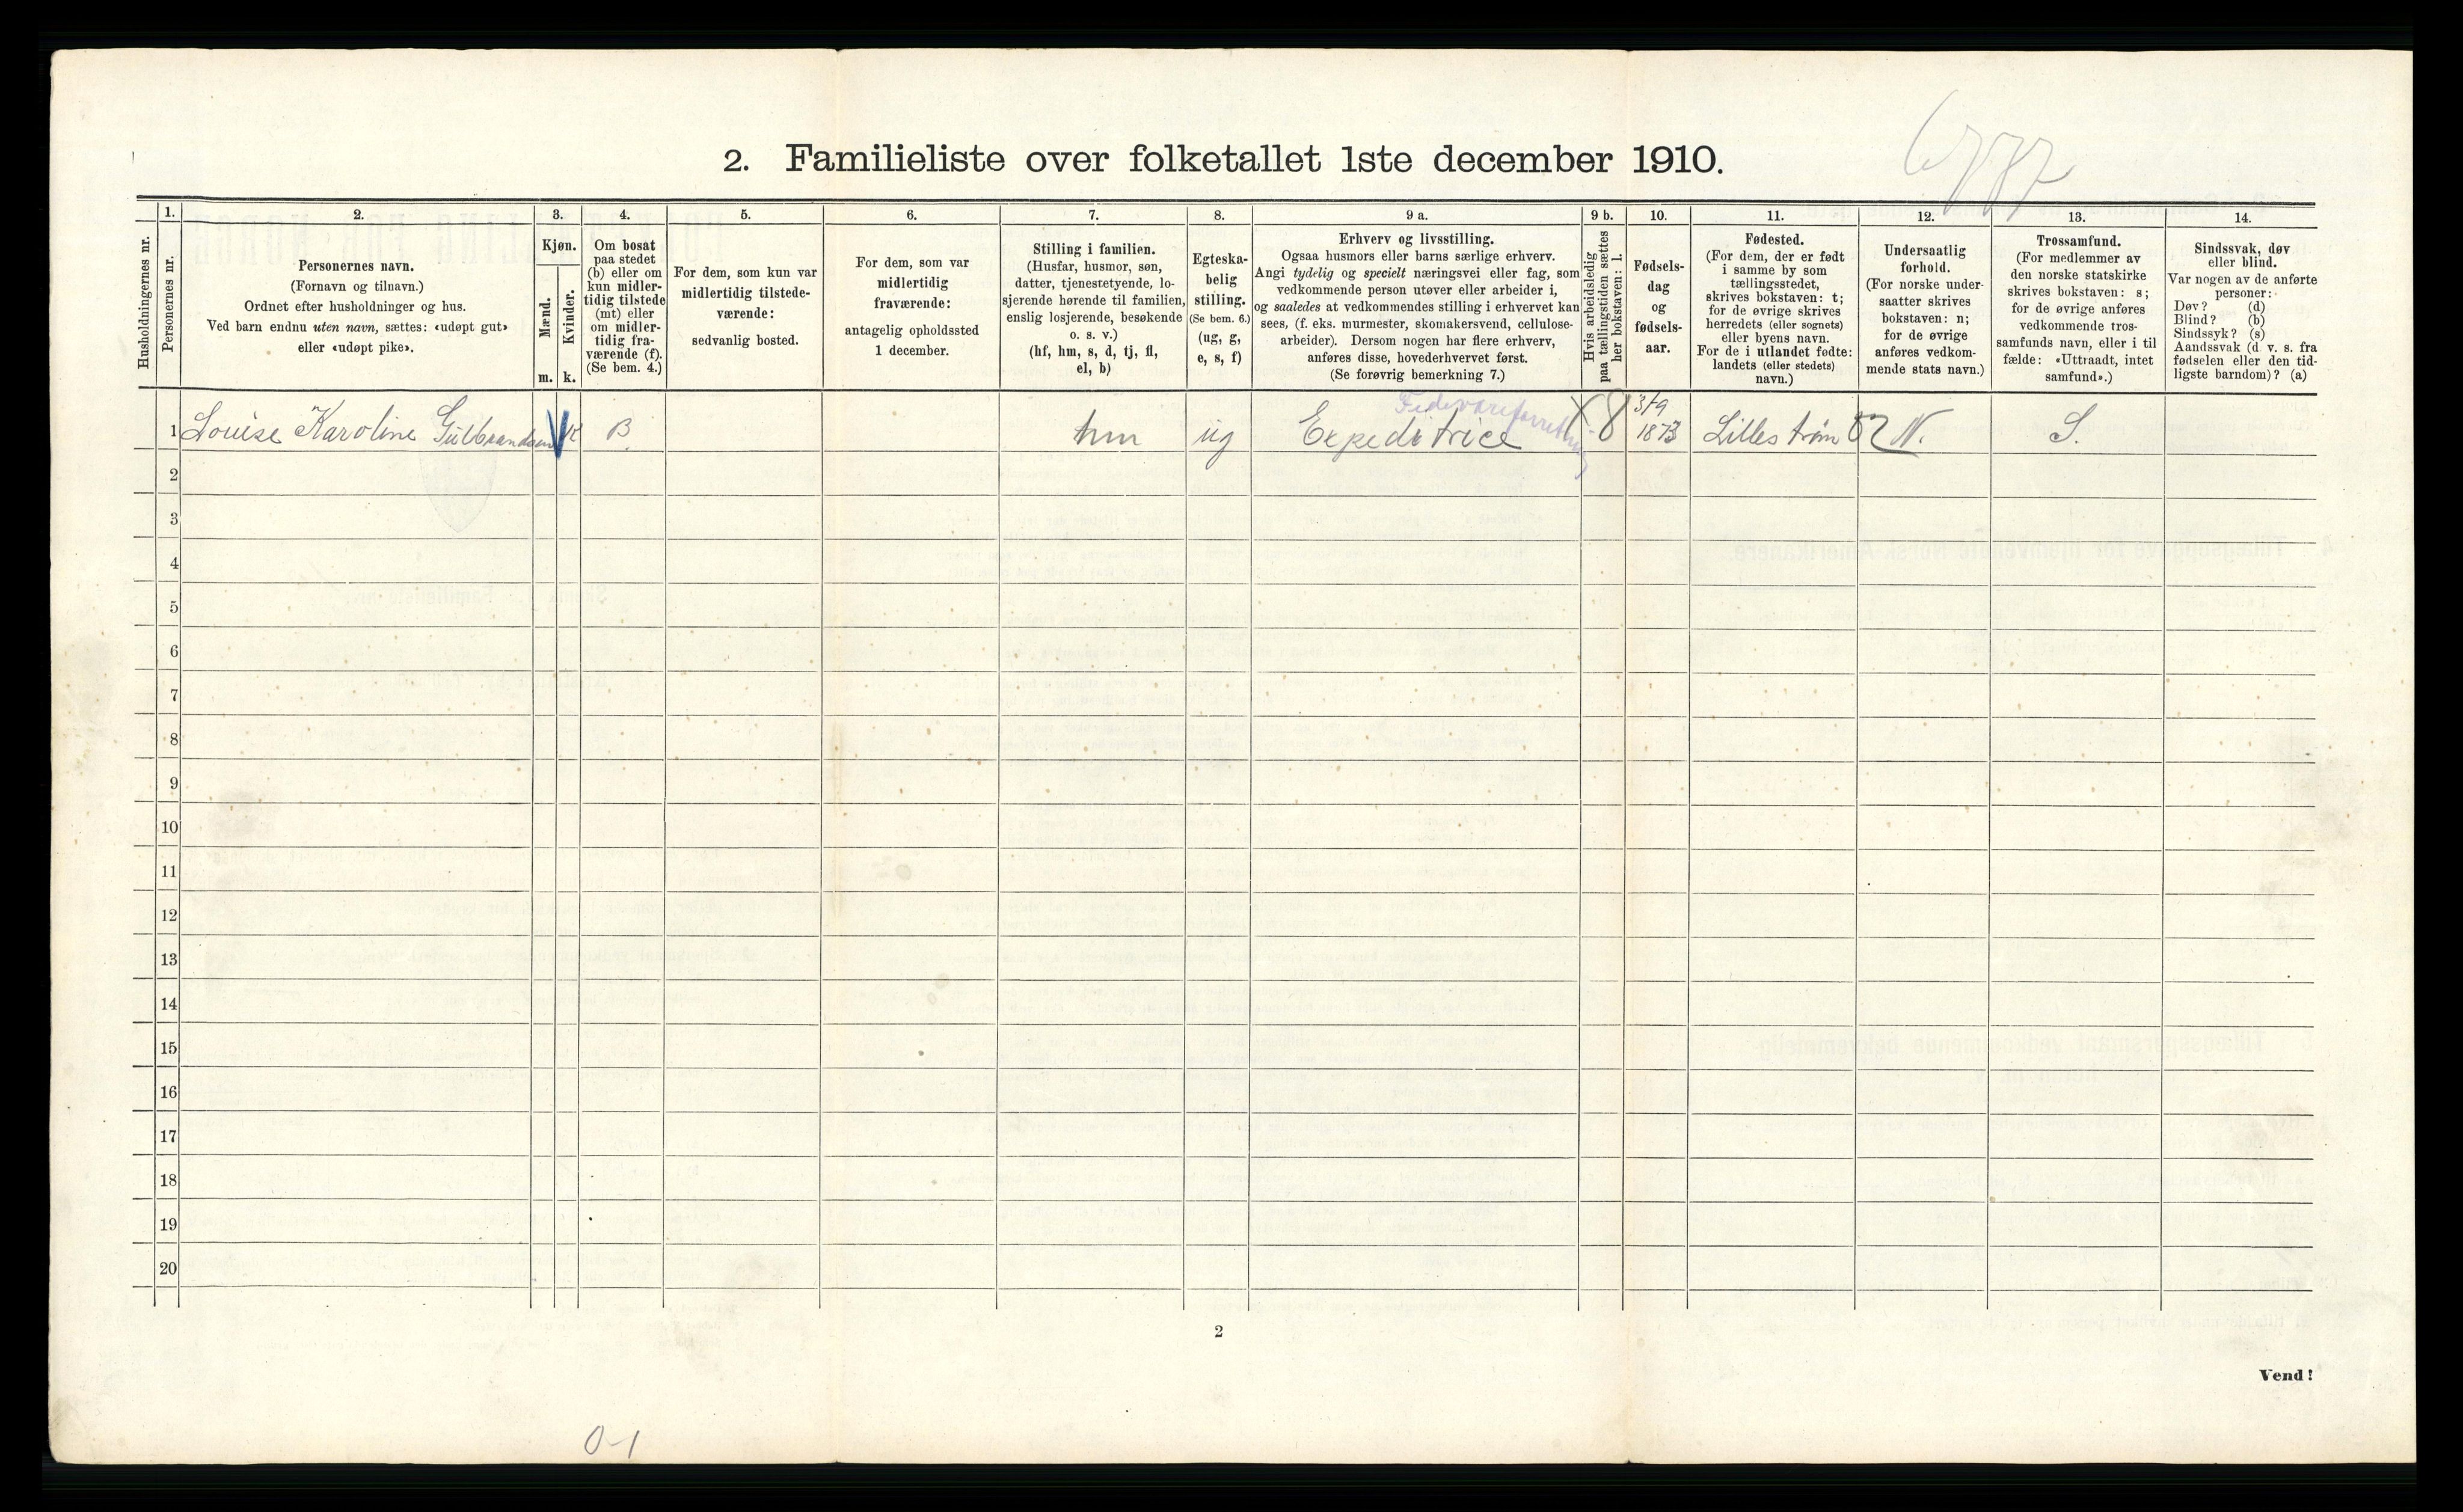 6777
2. Familieliste over folketallet 1ste december 1910.
Husholdningernes nr.
1.
Personernes nr.
2.
Personernes navn.
(Fornavn og tilnavn.)
Ordnet efter husholdninger og hus.
Ved barn endnu uten navn, sættes: «udøpt gut»
eller «udøpt pike».
3.
Kjøn.
Mænd.
Kvinder.
m. k.
4.
Om bosat
paa stedet
(b) eller om
kun midler-
tidig tilstede
(mt) eller
om midler-
tidig fra-
værende (f).
(Se bem. 4.)
5.
For dem, som kun var
midlertidig tilstede-
værende:
sedvanlig bosted.
6.
For dem, som var
midlertidig
fraværende:
antagelig opholdssted
1 december.
7.
Stilling i familien.
(Husfar, husmor, søn,
datter, tjenestetyende, lo-
sjerende hørende til familien,
enslig losjerende, besøkende
o. s. v.)
(hf, hm, s, d, tj, fl,
el, b)
8.
Egteska-
belig
stilling.
(Se bem. 6.)
(ug, g,
e, s, f)
9 a.
Erhverv og livsstilling.
Ogsaa husmors eller barns særlige erhverv.
Angi tydelig og specielt næringsvei eller fag, som
vedkommende person utøver eller arbeider i,
og saaledes at vedkommendes stilling i erhvervet kan
sees, (f. eks. murmester, skomakersvend, cellulose-
arbeider). Dersom nogen har flere erhverv,
anføres disse, hovederhvervet først.
(Se forøvrig bemerkning 7.)
9 b.
Hvis arbeidsledig
paa tællingstiden sættes
her bokstaven: l.
10.
Fødsels-
dag
og
fødsels-
aar.
11.
Fødested.
(For dem, der er født
i samme by som
tællingsstedet,
skrives bokstaven: t;
for de øvrige skrives
herredets (eller sognets)
eller byens navn.
For de i utlandet fødte:
landets (eller stedets)
navn.)
12.
Undersaatlig
forhold.
(For norske under-
saatter skrives
bokstaven: n;
for de øvrige
anføres vedkom-
mende stats navn.)
13.
Trossamfund.
(For medlemmer av
den norske statskirke
skrives bokstaven: s;
for de øvrige anføres
vedkommende tros-
samfunds navn, eller i til
fælde: «Uttraadt, intet
samfund».)
14.
Sindssvak, døv
eller blind.
Var nogen av de anførte
personer:
Døv? (d)
Blind? (b)
Sindssyk? (s)
Aandssvak (d. v. s. fra
fødselen eller den tid-
ligste barndom)? (a)
Fedevareforretning
1 Louise Karoline Gulbrandsen k B. hm ug Expeditrice X 8 3/9 1873 Lillestrøm 02 N. S.
2
3
4
5
6
7
8
9
10
11
12
13
14
15
16
17
18
19
20
2
Vend!
0-1